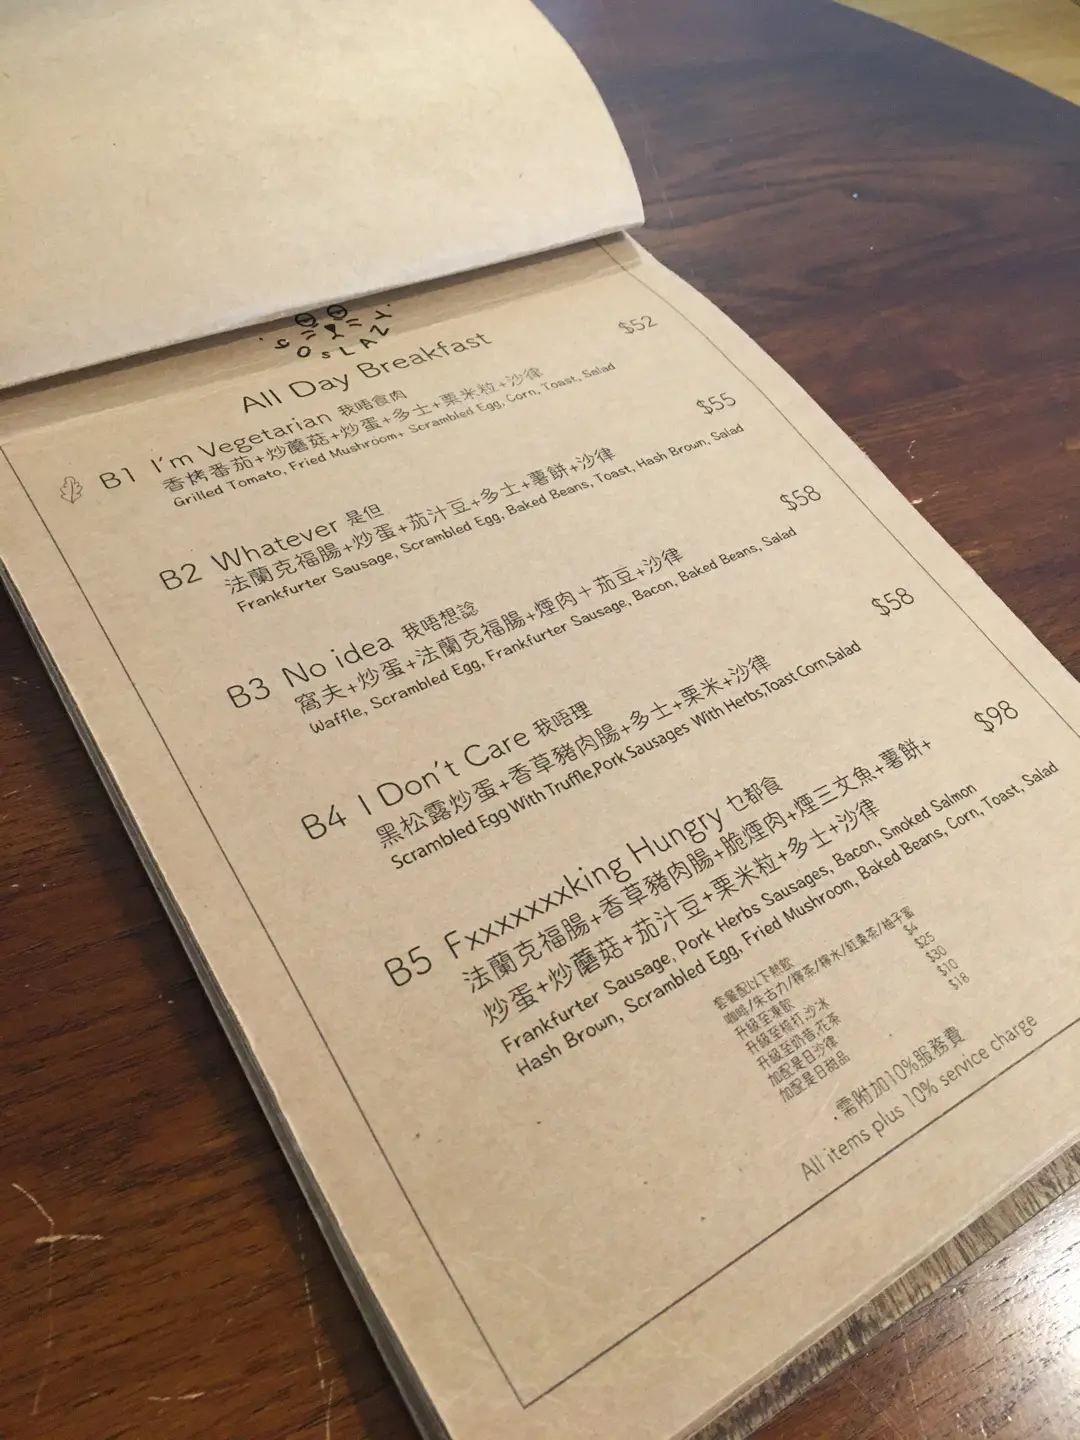 COSLAZY
All Day Breakfast
B1 I'm Vegetarian 我唔食肉 $52
香烤番茄+炒蘑菇+炒蛋+多士+栗米粒+沙律
Grilled Tomato, Fried Mushroom+ Scrambled Egg, Corn, Toast, Salad
B2 Whatever 是但 $55
法蘭克福腸+炒蛋+茄汁豆+多士+薯餅+沙律
Frankfurter Sausage, Scrambled Egg, Baked Beans, Toast, Hash Brown, Salad
B3 No idea 我唔想諗 $58
窩夫+炒蛋+法蘭克福腸+煙肉+茄豆+沙律
Waffle, Scrambled Egg, Frankfurter Sausage, Bacon, Baked Beans, Salad
B4 I Don't Care 我唔理 $58
黑松露炒蛋+香草豬肉腸+多士+栗米+沙律
Scrambled Egg With Truffle,Pork Sausages With Herbs,Toast Corn,Salad
B5 Fxxxxxxxking Hungry 乜都食 $98
法蘭克福腸+香草豬肉腸+脆煙肉+煙三文魚+薯餅+
炒蛋+炒蘑菇+茄汁豆+栗米粒+多士+沙律
Frankfurter Sausage, Pork Herbs Sausages, Bacon, Smoked Salmon
Hash Brown, Scrambled Egg, Fried Mushroom, Baked Beans, Corn, Toast, Salad
套餐配以下熱飲
咖啡/朱古力/檸茶/檸水/紅棗茶/柚子蜜
升級至凍飲 $4
升級至梳打,沙冰 $25
升級至奶昔,花茶 $30
加配是日沙律 $10
加配是日甜品 $18
需附加10%服務費
All items plus 10% service charge